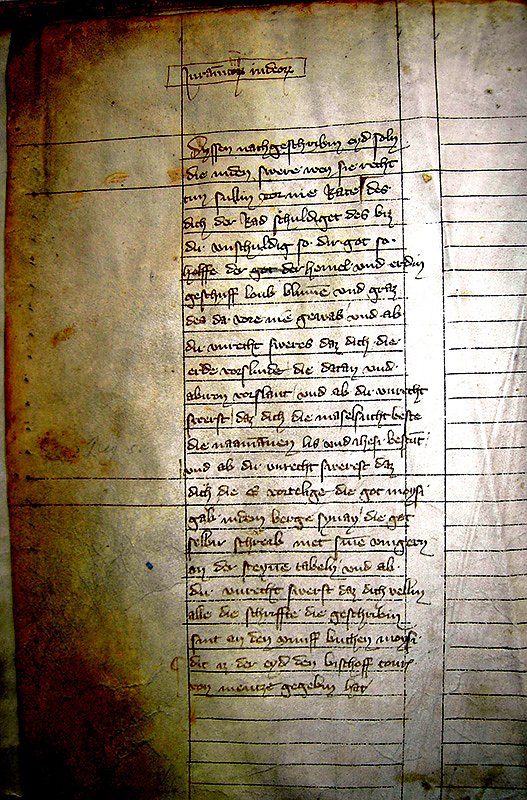 Juramentum iudeorum
Dyssen nachgeschribin eyd soln
die iuden swere wen sie recht
tun sullin vor me Rate des
dich der Rad schuldiget des biz
du vnschuldig so dir got so
helffe der got der hemel vnd erdin
geschuff loub blume vnd graz
des da vore nie gewas vnd ab
du vnrecht sweres daz dich die
erde vorslinde die datan vnd
abiron vorslant vnd ab du vnrecht
swerst daz dich die maselsucht beste
die naamanen lis vnd ihesi bestunt
vnd ab du vnrecht swerest daz
dich die E vortelige die got moysi
gab in dem berge synay die got
selbir schreib met sine vingern
an der steyne tabeln vnd ab
du vnrecht swerst daz dich vellin
alle die schriffte die geschribin
sint an den vumff buchen moysi
dit iz der eyd den bischoff conr
von mentze gegebin hat